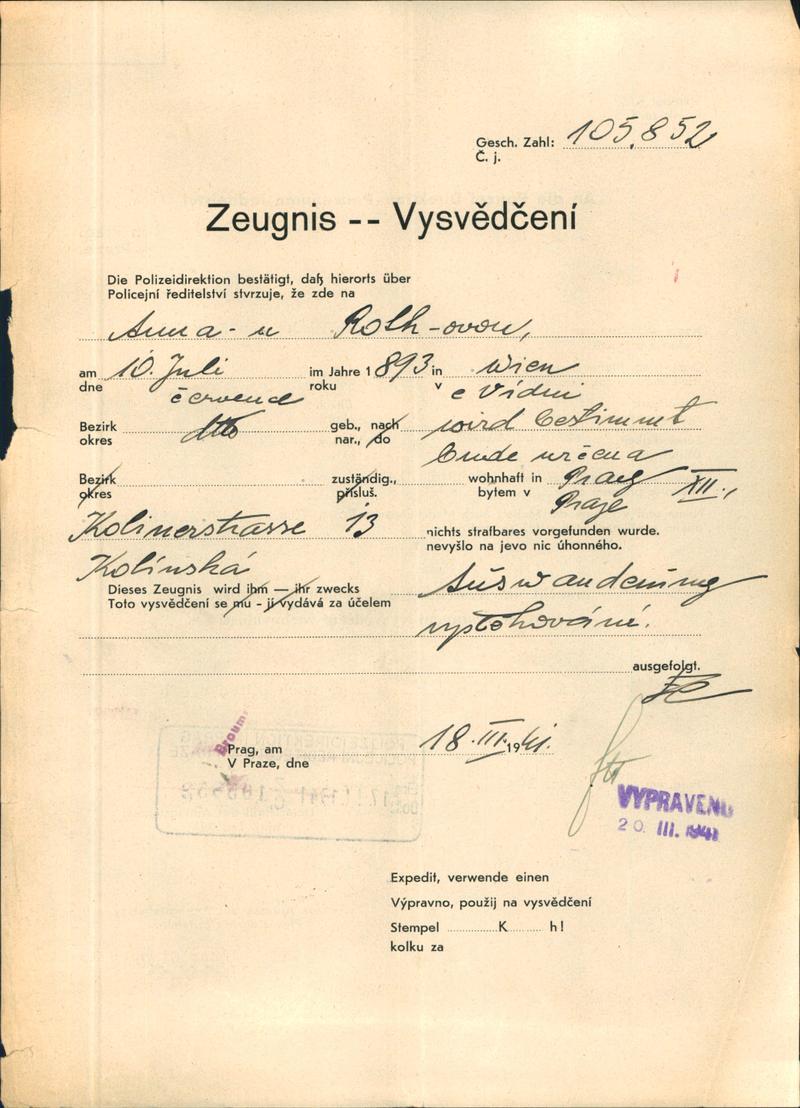 Gesch. Zahl: 105.852
Č. j.
Zeugnis -- Vysvědčení
Die Polizeidirektion bestätigt, daß hierorts über
Policejní ředitelství stvrzuje, že zde na
Anna-u Roth-ovou,
am 10. Juli im Jahre 1893 in Wien
dne července roku v e Vídni
Bezirk dtto geb., nach wird bestimmt
okres nar., do bude určena
Bezirk zuständig., wohnhaft in Prag XII.,
okres přísluš. bytem v Praze
Kolinerstrasse 13 nichts strafbares vorgefunden wurde.
nevyšlo na jevo nic úhonného.
Kolínská
Dieses Zeugnis wird ihm — ihr zwecks Auswanderung
Toto vysvědčení se mu - jí vydává za účelem
vystěhování.
ausgefolgt.
Prag, am 18. III. 1941.
V Praze, dne
VYPRAVENO
20. III. 1941
Expedit, verwende einen
Výpravno, použij na vysvědčení
Stempel K h!
kolku za